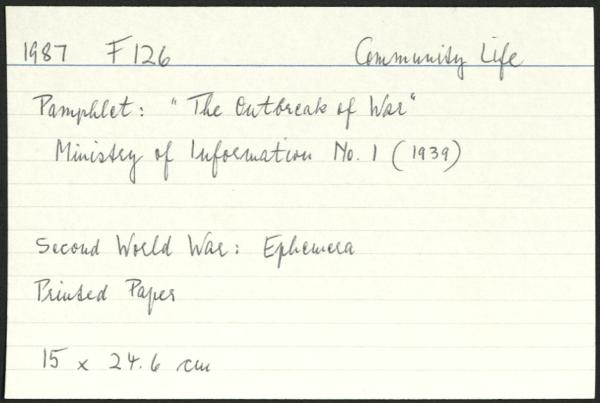 1987 F126 Community Life
Pamphlet: "The Outbreak of War"
Ministry of Information No. 1 (1939)
Second World War: Ephemera
Printed Paper
15 x 24.6 cm